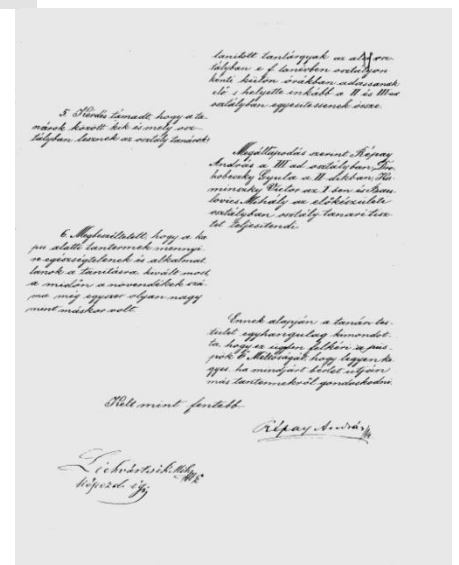 tanított tantárgyak az alsó osz-
tályban e f. tanévben osztályon
kénti külön órákban adassanak
elő s helyette inkább a II és III ad
osztályban egyesitessenek össze.
5. Kérdés támadt, hogy a ta-
nárok között kik és mely osz-
tályban lesznek az osztály tanárok
Megállapodás szerint Répay
András a III ad osztályban,
Gyula a II dikban,
Victor az I ben és
Mihály az előkészületi
osztályban osztály tanári tisz-
tet teljesitendi
6. Megbeszéltetett, hogy a ka-
pu alatti tantermek mennyi-
re egészségtelenek és alkalmat-
lanok a tanításra kivált most,
a midőn a növendékek szá-
ma még egyszer olyan nagy
mint máskor volt.
Ennek alapján a tanári tes-
tület egyhangulag kimondot-
ta, hogy ez ügyben felkéri a püs-
pök Ő Méltóságát, hogy legyen ke-
gyes, ha mindjárt bérlet utján
más tantermekről gondoskodni.
Kelt mint fentebb.
Répay András